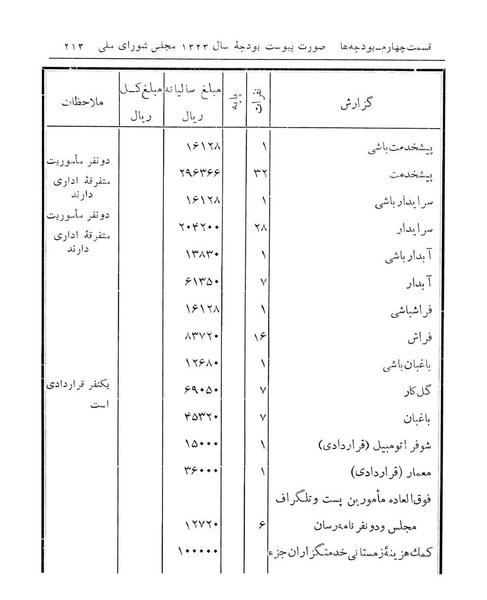 قسمت چهارم-بودجه‌ها صورت پیوست بودجهٔ سال ۱۳۲۳ مجلس شورای ملی ۲۱۳
گزارش نفرات پایه مبلغ سالیانه ریال مبلغ کل ریال ملاحظات
پیشخدمت باشی ۱ ۱۶۱۲۸
پیشخدمت ۳۲ ۲۹۶۳۶۶ دو نفر مأموریت متفرقهٔ اداری دارند
سرایدار باشی ۱ ۱۶۱۲۸
سرایدار ۲۸ ۲۰۴۲۰۰ دو نفر مأموریت متفرقهٔ اداری دارند
آبدار باشی ۱ ۱۳۸۳۰
آبدار ۷ ۶۱۳۵۰
فراشباشی ۱ ۱۶۱۲۸
فراش ۱۶ ۸۳۷۲۰
باغبان باشی ۱ ۱۲۶۸۰
گل کار ۷ ۶۹۰۵۰ یکنفر قراردادی است
باغبان ۷ ۴۵۳۲۰
شوفر اتومبیل (قراردادی) ۱ ۱۵۰۰۰
معمار (قراردادی) ۱ ۳۶۰۰۰
فوق‌العاده مأمورین پست و تلگراف
مجلس و دو نفر نامه رسان ۶ ۱۲۷۲۰
کمک هزینهٔ زمستانی خدمتگزاران جزء ۱۰۰۰۰۰